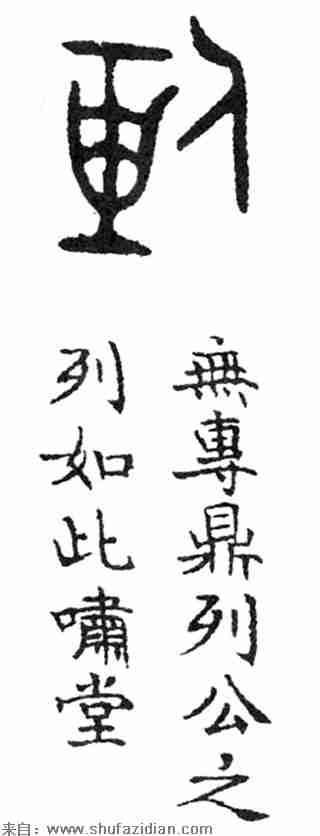 無專鼎列公之
列如此嘯堂
来自：www.shufazidian.com